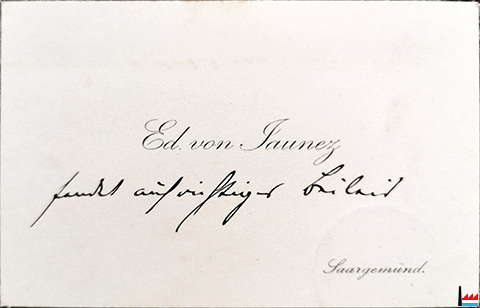 Ed. von Jaunez
sendet aufrichtiges Beileid
Saargemünd.